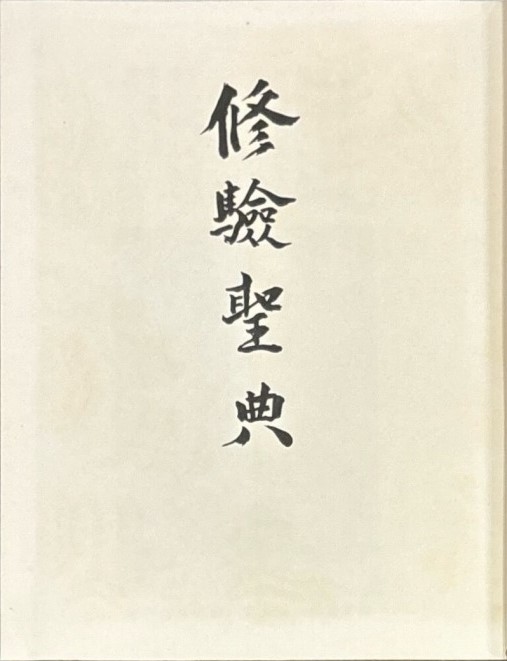 修驗聖典